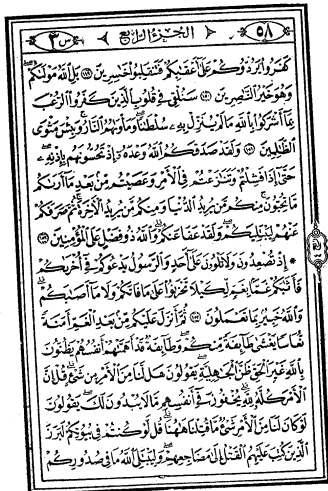 ٥٨ الجزء الرابع س ٣
كَفَرُوا يَرُدُّوكُمْ عَلَىٰ أَعْقَٰبِكُمْ فَتَنقَلِبُوا خَٰسِرِينَ ١٤٩ بَلِ اللَّهُ مَوْلَىٰكُمْ
وَهُوَ خَيْرُ النَّٰصِرِينَ ١٥٠ سَنُلْقِي فِي قُلُوبِ الَّذِينَ كَفَرُوا الرُّعْبَ
بِمَا أَشْرَكُوا بِاللَّهِ مَا لَمْ يُنَزِّلْ بِهِۦ سُلْطَٰنًا وَمَأْوَىٰهُمُ النَّارُ وَبِئْسَ مَثْوَى
الظَّٰلِمِينَ ١٥١ وَلَقَدْ صَدَقَكُمُ اللَّهُ وَعْدَهُۥ إِذْ تَحُسُّونَهُم بِإِذْنِهِۦ
حَتَّىٰ إِذَا فَشِلْتُمْ وَتَنَٰزَعْتُمْ فِي الْأَمْرِ وَعَصَيْتُم مِّن بَعْدِ مَا أَرَىٰكُم
مَّا تُحِبُّونَ مِنكُم مَّن يُرِيدُ الدُّنْيَا وَمِنكُم مَّن يُرِيدُ الْآخِرَةَ ثُمَّ صَرَفَكُمْ
عَنْهُمْ لِيَبْتَلِيَكُمْ وَلَقَدْ عَفَا عَنكُمْ وَاللَّهُ ذُو فَضْلٍ عَلَى الْمُؤْمِنِينَ ١٥٢
* إِذْ تُصْعِدُونَ وَلَا تَلْوُۥنَ عَلَىٰ أَحَدٍ وَالرَّسُولُ يَدْعُوكُمْ فِي أُخْرَىٰكُمْ
فَأَثَٰبَكُمْ غَمًّا بِغَمٍّ لِّكَيْلَا تَحْزَنُوا عَلَىٰ مَا فَاتَكُمْ وَلَا مَا أَصَٰبَكُمْ
وَاللَّهُ خَبِيرٌ بِمَا تَعْمَلُونَ ١٥٣ ثُمَّ أَنزَلَ عَلَيْكُم مِّن بَعْدِ الْغَمِّ أَمَنَةً
نُّعَاسًا يَغْشَىٰ طَائِفَةً مِّنكُمْ وَطَائِفَةٌ قَدْ أَهَمَّتْهُمْ أَنفُسُهُمْ يَظُنُّونَ
بِاللَّهِ غَيْرَ الْحَقِّ ظَنَّ الْجَٰهِلِيَّةِ يَقُولُونَ هَل لَّنَا مِنَ الْأَمْرِ مِن شَيْءٍ قُلْ إِنَّ
الْأَمْرَ كُلَّهُۥ لِلَّهِ يُخْفُونَ فِي أَنفُسِهِم مَّا لَا يُبْدُونَ لَكَ يَقُولُونَ
لَوْ كَانَ لَنَا مِنَ الْأَمْرِ شَيْءٌ مَّا قُتِلْنَا هَٰهُنَا قُل لَّوْ كُنتُمْ فِي بُيُوتِكُمْ لَبَرَزَ
الَّذِينَ كُتِبَ عَلَيْهِمُ الْقَتْلُ إِلَىٰ مَضَاجِعِهِمْ وَلِيَبْتَلِيَ اللَّهُ مَا فِي صُدُورِكُمْ